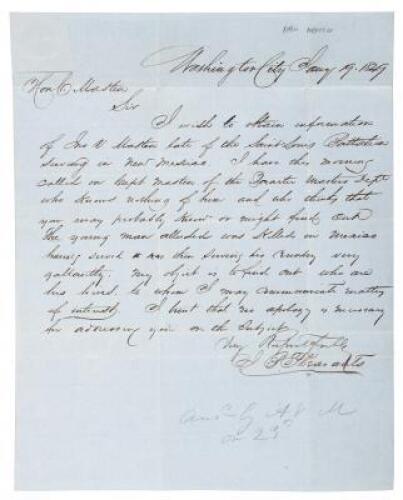 Washington City Jany 19. 1849
Hon C Masten
Sir
I wish to obtain information
of Jno V Masten late of the Saint Louis Battalion
serving in New Mexico. I have this morning
called on Capt Masten of the Quarter Masters Dept
who knows nothing of him and who thinks that
you may probably know or might find out
The young man alluded was killed in Mexico
having served & was then serving his country very
gallantly. My object is to find out who are
his heirs, to whom I may communicate matters
of interest. I trust that no apology is necessary
for addressing you on the subject
Very Respectfully
J P
Ansd by
on 23d